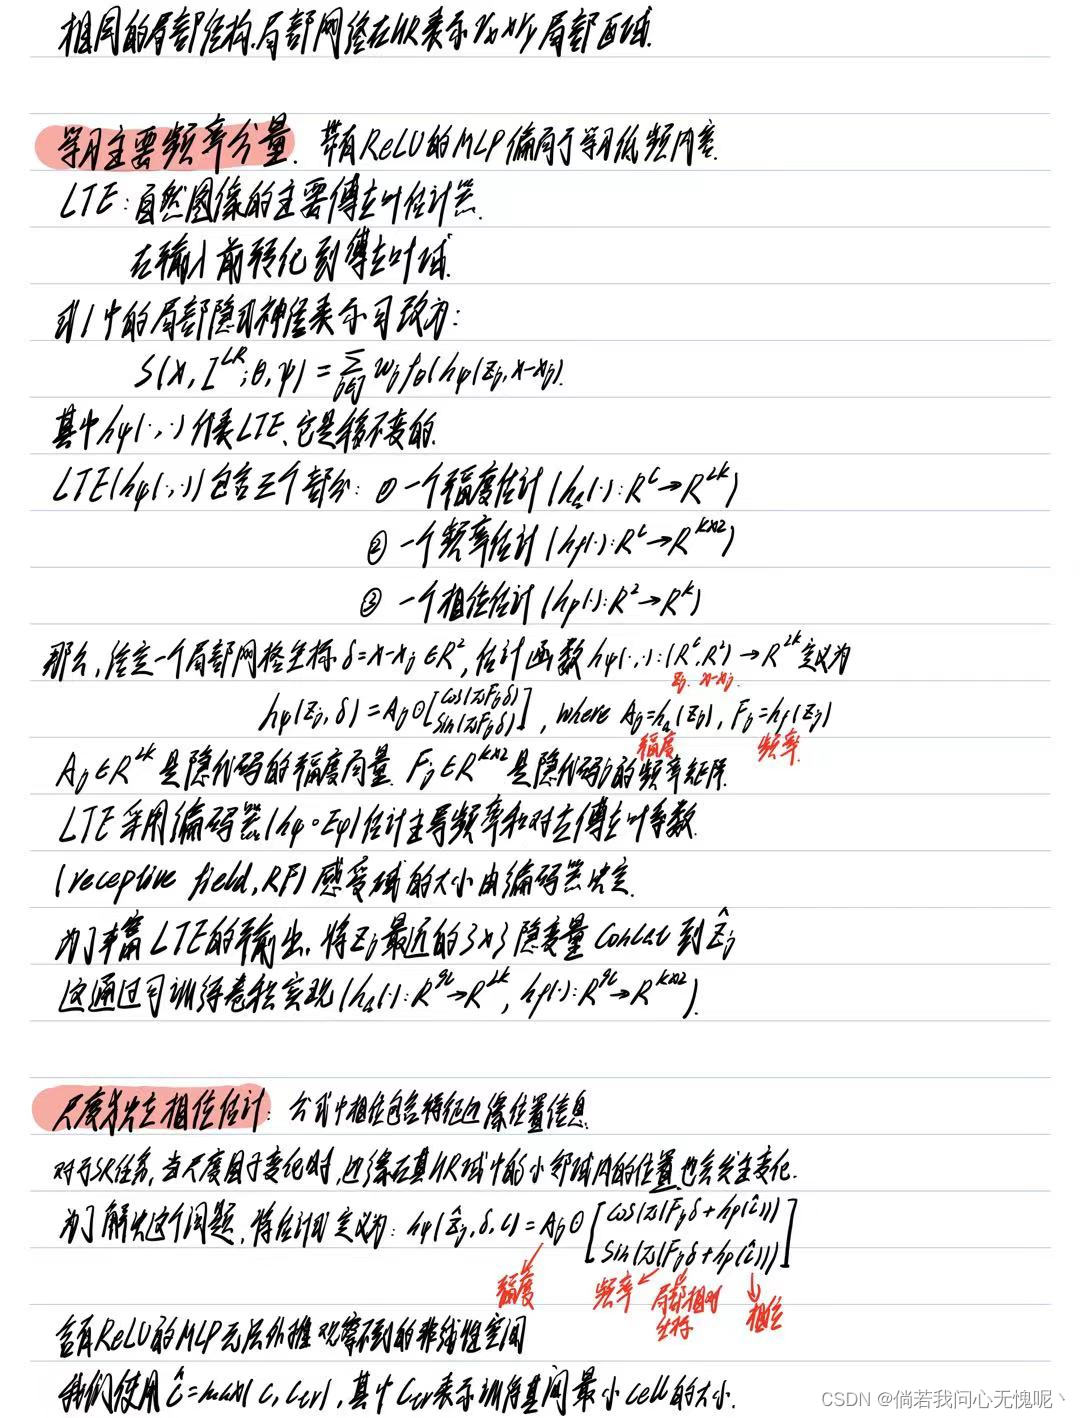 相同的局部结构.局部网络在HR表示 rx×ry 局部区域.
学习主要频率分量. 带有ReLU的MLP偏向于学习低频内容.
LTE:自然图像的主要傅立叶估计器.
在输入前转化到傅立叶域.
式1中的局部隐式神经表示可改为:
S(x, I^LR; θ, ψ) = Σ_{j∈J} w_j f_θ(h_ψ(z_j, x-x_j).
其中h_ψ(·,·)代表LTE、它是移不变的.
LTE(h_ψ(·,·))包含三个部分: ① 一个幅度估计(h_a(·): R^C→R^2K)
② 一个频率估计(h_f(·): R^C→R^K×2)
③ 一个相位估计(h_p(·): R^2→R^K)
那么,给定一个局部网格坐标δ=x-x_j∈R^2,估计函数h_ψ(·,·):(R^C,R^2)→R^2K定义为
z_j x-x_j
h_ψ(z_j, δ) = A_j⊙[cos(πF_jδ) sin(πF_jδ)], where A_j=h_a(z_j), F_j=h_f(z_j)
幅度 频率
A_j∈R^2K是隐代码的幅度向量. F_j∈R^K×2是隐代码j的频率矩阵.
LTE采用编码器(h_ψ∘E_φ)估计主导频率和对应傅立叶系数.
(receptive field, RF)感受域的大小由编码器决定.
为了丰富LTE的输出,将z_j最近的3×3隐变量concat到ẑ_j
这通过可训练卷积实现(h_a(·): R^9C→R^2K, h_f(·): R^9C→R^K×2).
尺度独立相位估计: 公式中相位包含特征边缘位置信息.
对于SR任务,当尺度因子变化时,边缘在其HR域中的小邻域内的位置也会发生变化.
为了解决这个问题,将估计式定义为: h_ψ(ẑ_j, δ, c) = A_j⊙[cos(π(F_jδ+h_p(ĉ))) sin(π(F_jδ+h_p(ĉ)))]
幅度 频率 局部相对坐标 相位
含有ReLU的MLP无法外推观察不到的非线性空间
我们使用ĉ=max(c, c_tr),其中c_tr表示训练期间最小cell的大小.
CSDN @倘若我问心无愧呢丶